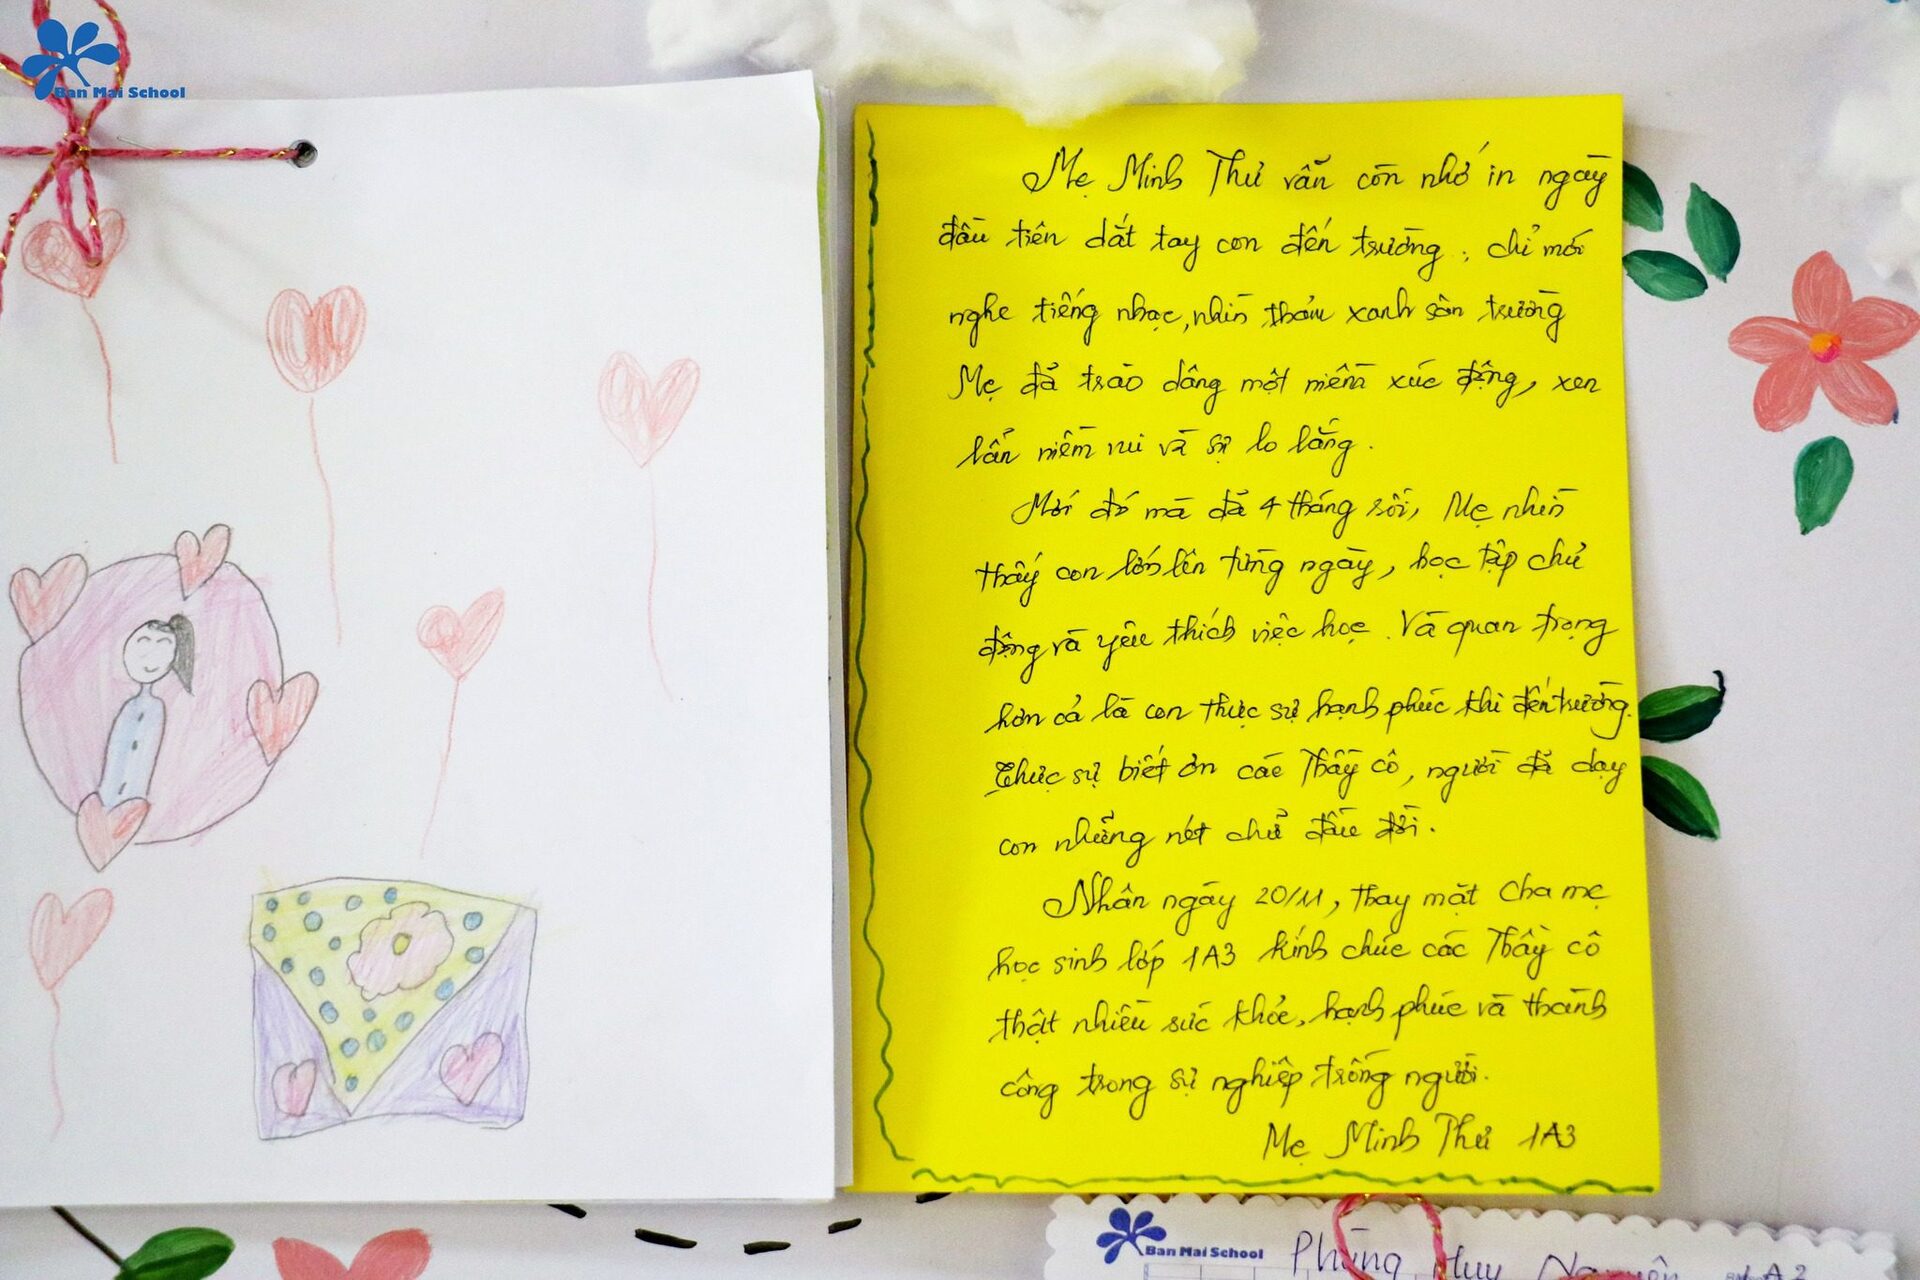 Ban Mai School
Mẹ Minh Thư vẫn còn nhớ in ngày
đầu tiên dắt tay con đến trường, chỉ mới
nghe tiếng nhạc, nhìn thảm xanh sân trường
Mẹ đã trào dâng một niềm xúc động, xen
lẫn niềm vui và sự lo lắng.
Mới đó mà đã 4 tháng rồi, Mẹ nhìn
thấy con lớn lên từng ngày, học tập chủ
động và yêu thích việc học. Và quan trọng
hơn cả là con thực sự hạnh phúc khi đến trường.
Thực sự biết ơn các Thầy cô, người đã dạy
con những nét chữ đầu đời.
Nhân ngày 20/11, thay mặt cha mẹ
học sinh lớp 1A3 kính chúc các Thầy cô
thật nhiều sức khỏe, hạnh phúc và thành
công trong sự nghiệp trồng người.
Mẹ Minh Thư 1A3
Ban Mai School Phùng Huy